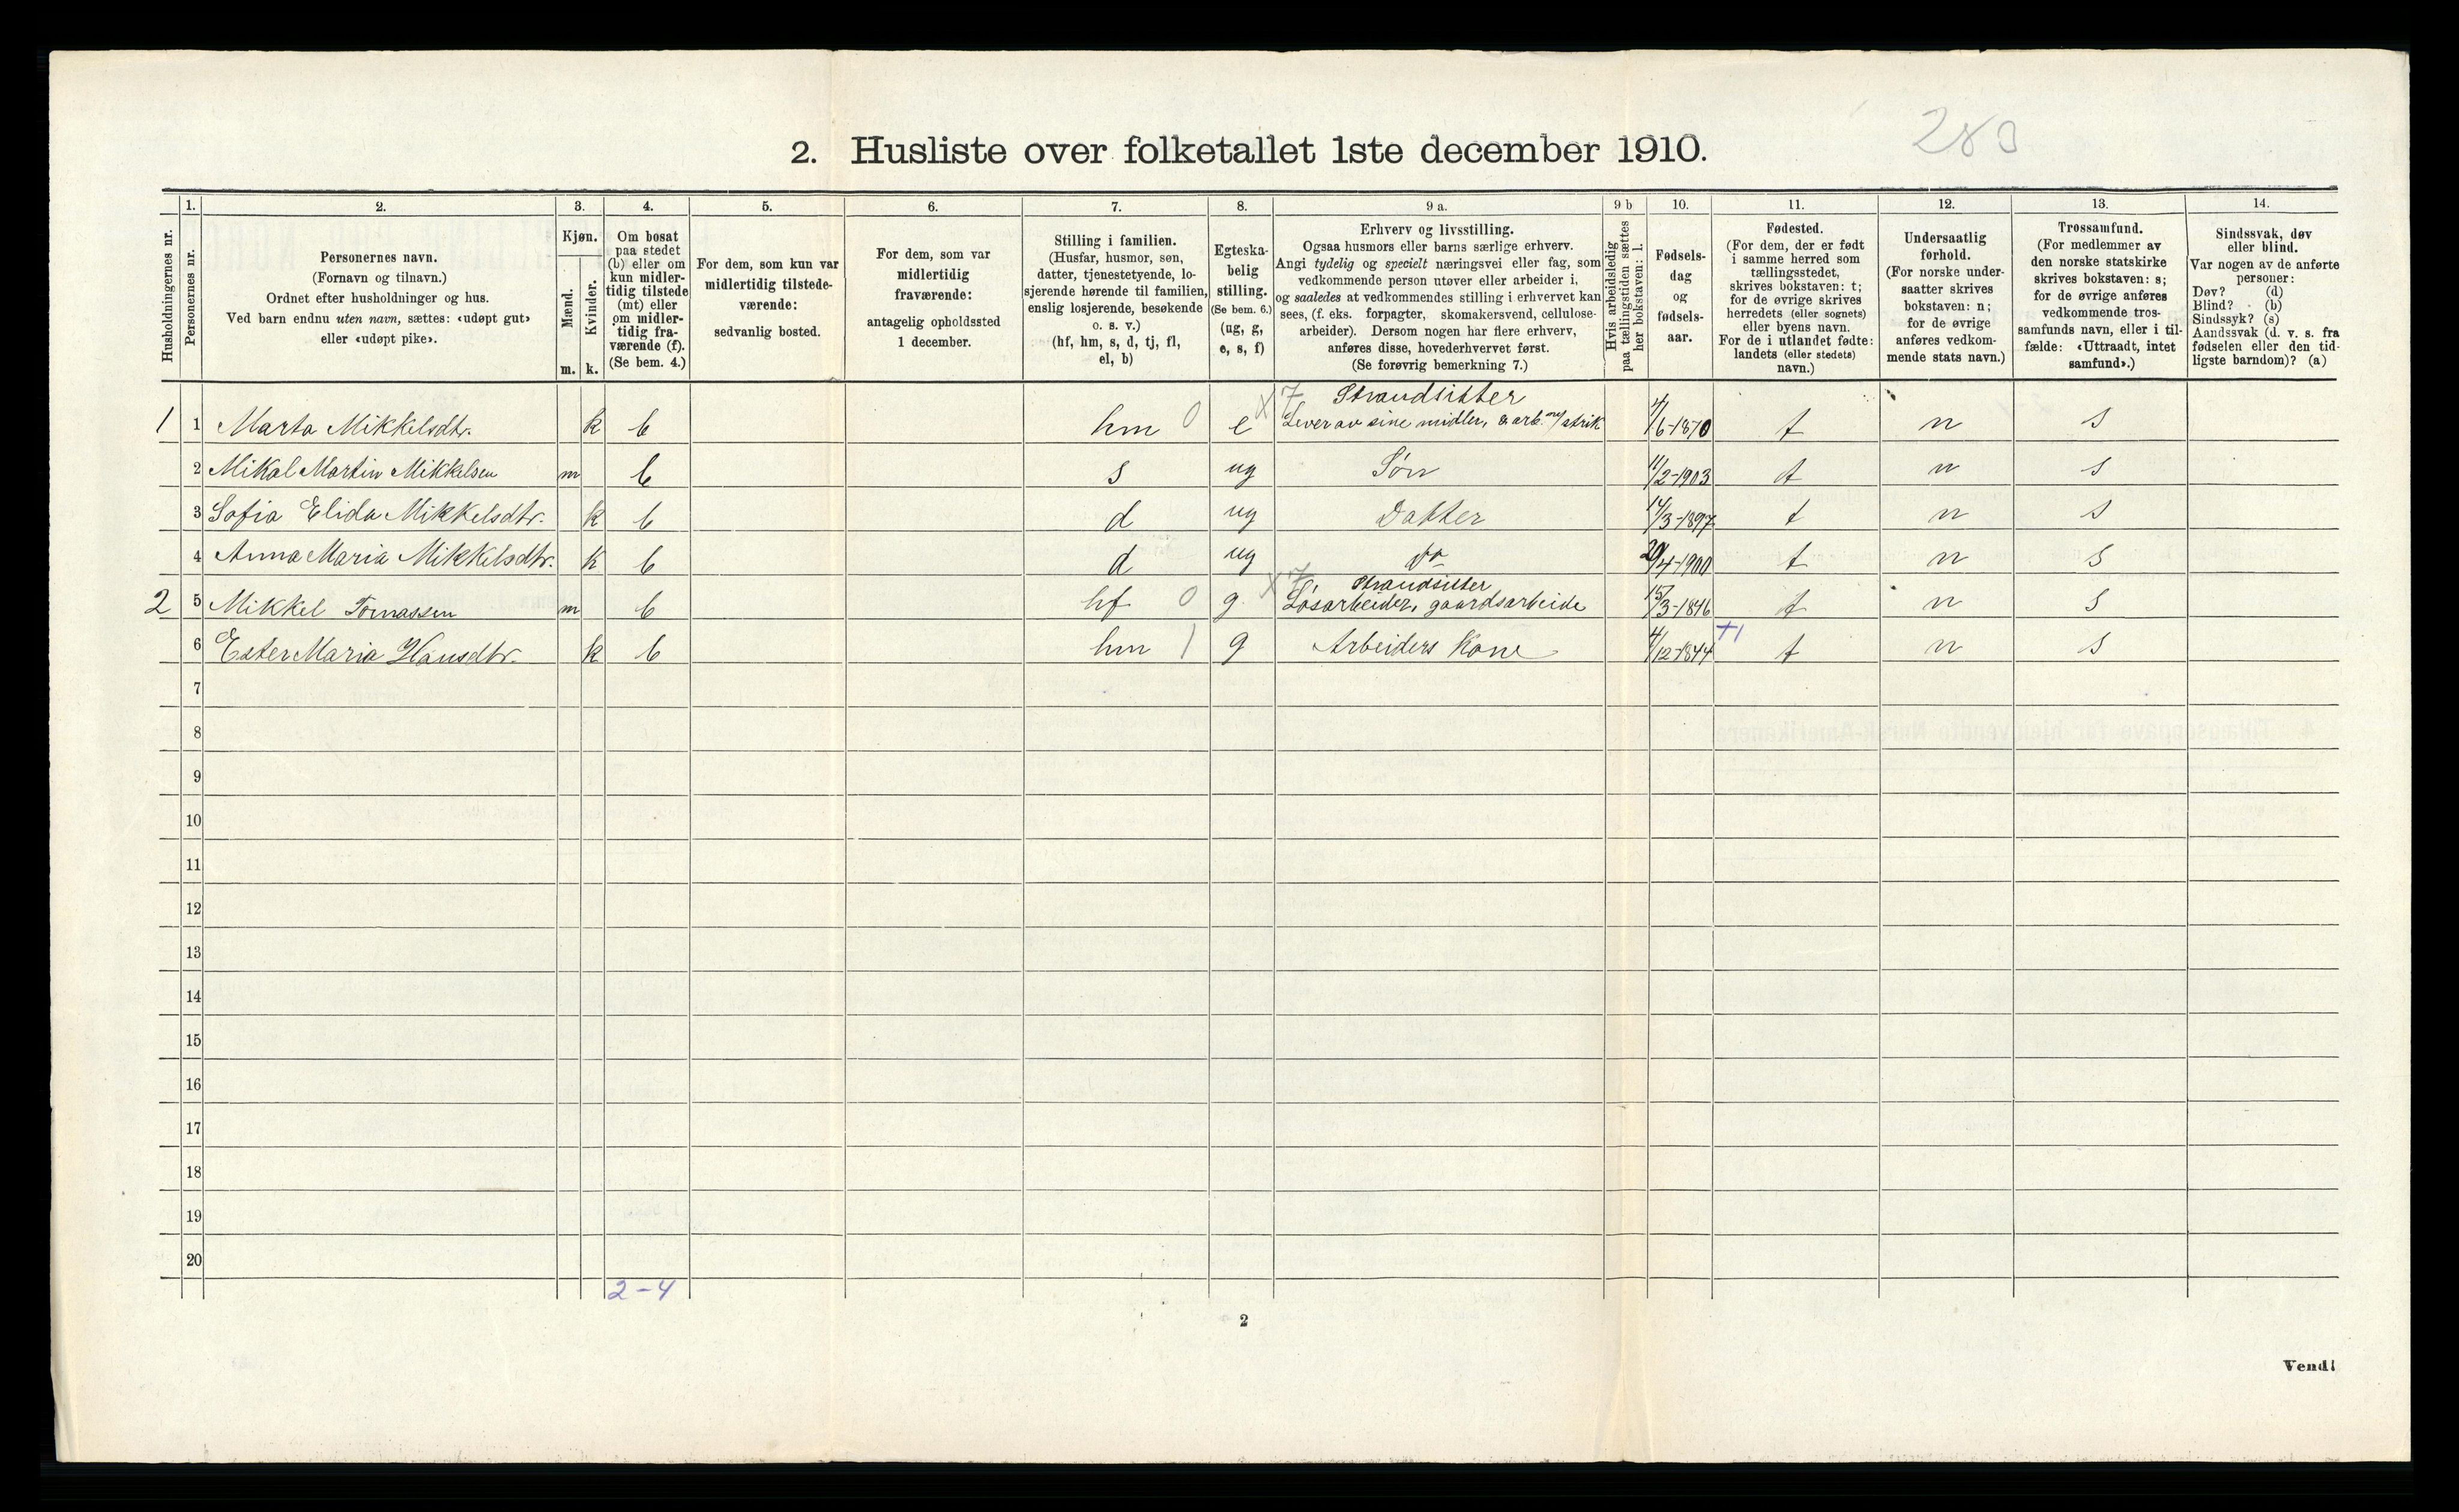 283
2. Husliste over folketallet 1ste december 1910.
Husholdningernes nr.
1.
Personernes nr.
2.
Personernes navn.
(Fornavn og tilnavn.)
Ordnet efter husholdninger og hus.
Ved barn endnu uten navn, sættes: «udøpt gut»
eller «udøpt pike».
3.
Kjøn.
Mænd.
Kvinder.
m. k.
4.
Om bosat
paa stedet
(b) eller om
kun midler-
tidig tilstede
(mt) eller
om midler-
tidig fra-
værende (f).
(Se bem. 4.)
5.
For dem, som kun var
midlertidig tilstede-
værende:
sedvanlig bosted.
6.
For dem, som var
midlertidig
fraværende:
antagelig opholdssted
1 december.
7.
Stilling i familien.
(Husfar, husmor, søn,
datter, tjenestetyende, lo-
sjerende hørende til familien,
enslig losjerende, besøkende
o. s. v.)
(hf, hm, s, d, tj, fl,
el, b)
8.
Egteska-
belig
stilling.
(Se bem. 6.)
(ug, g,
e, s, f)
9 a.
Erhverv og livsstilling.
Ogsaa husmors eller barns særlige erhverv.
Angi tydelig og specielt næringsvei eller fag, som
vedkommende person utøver eller arbeider i,
og saaledes at vedkommendes stilling i erhvervet kan
sees, (f. eks. forpagter, skomakersvend, cellulose-
arbeider). Dersom nogen har flere erhverv,
anføres disse, hovederhvervet først.
(Se forøvrig bemerkning 7.)
9 b
Hvis arbeidsledig
paa tællingstiden sættes
her bokstaven: l.
10.
Fødsels-
dag
og
fødsels-
aar.
11.
Fødested.
(For dem, der er født
i samme herred som
tællingsstedet,
skrives bokstaven: t;
for de øvrige skrives
herredets (eller sognets)
eller byens navn.
For de i utlandet fødte:
landets (eller stedets)
navn.)
12.
Undersaatlig
forhold.
(For norske under-
saatter skrives
bokstaven: n;
for de øvrige
anføres vedkom-
mende stats navn.)
13.
Trossamfund.
(For medlemmer av
den norske statskirke
skrives bokstaven: s;
for de øvrige anføres
vedkommende tros-
samfunds navn, eller i til-
fælde: «Uttraadt, intet
samfund».)
14.
Sindssvak, døv
eller blind.
Var nogen av de anførte
personer:
Døv? (d)
Blind? (b)
Sindssyk? (s)
Aandssvak (d. v. s. fra
fødselen eller den tid-
ligste barndom)? (a)
X 7 Strandsitter
1 1 Marta Mikkelsdtr. k b hm 0 e Lever av sine midler, & arb. m/ strik /6-1870 t n s
2 Mikal Martin Mikkelsen m b s ug Søn 11/2-1903 t n s
3 Sofia Elida Mikkelsdtr. k b d ug Datter 14/3-1897 t n s
4 Anna Maria Mikkelsdtr. k b d ug do 20/4-1900 t n s
X 7 Strandsitter
2 5 Mikkel Tomassen m b hf 0 g Løsarbeider, gaardsarbeide 15/3-1846 t n s
6 Ester Maria Hansdtr. k b hm 1 g Arbeiders Kone 4/12-1844 +1 t n s
7
8
9
10
11
12
13
14
15
16
17
18
19
20
2-4
2
Vend!